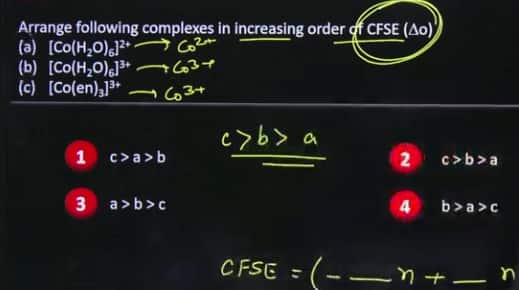 Arrange following complexes in increasing order of CFSE (Δo)
(a) [Co(H₂O)₆]²⁺ → Co²⁺
(b) [Co(H₂O)₆]³⁺ → Co³⁺
(c) [Co(en)₃]³⁺ → Co³⁺
c > b > a
1 c > a > b
2 c > b > a
3 a > b > c
4 b > a > c
CFSE = (- — n + — n